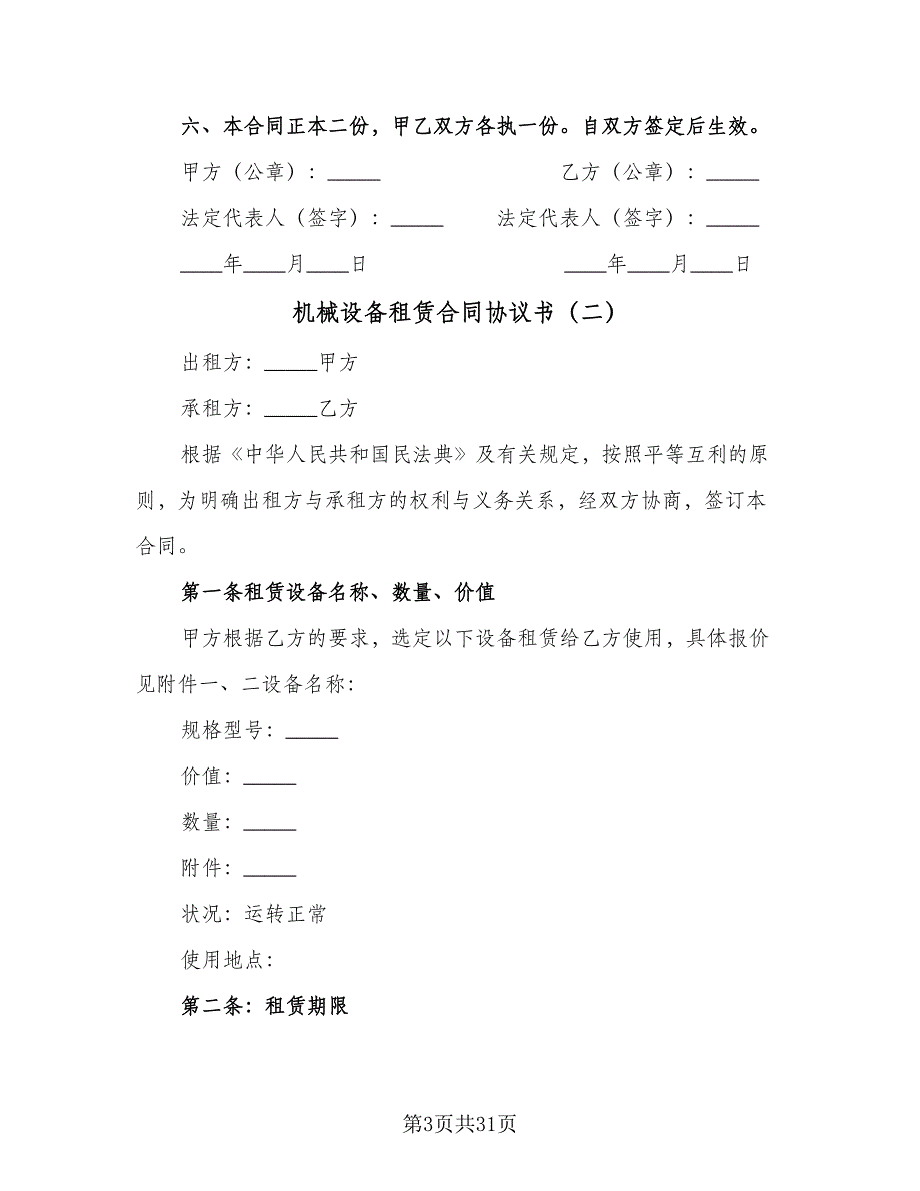 六、本合同正本二份，甲乙双方各执一份。自双方签定后生效。
甲方（公章）：_____ 乙方（公章）：_____
法定代表人（签字）：_____ 法定代表人（签字）：_____
____年____月____日 ____年____月____日
机械设备租赁合同协议书（二）
出租方：_____甲方
承租方：_____乙方
根据《中华人民共和国民法典》及有关规定，按照平等互利的原
则，为明确出租方与承租方的权利与义务关系，经双方协商，签订本
合同。
第一条租赁设备名称、数量、价值
甲方根据乙方的要求，选定以下设备租赁给乙方使用，具体报价
见附件一、二设备名称：
规格型号：_____
价值：_____
数量：_____
附件：_____
状况：运转正常
使用地点：
第二条：租赁期限
第3页共31页